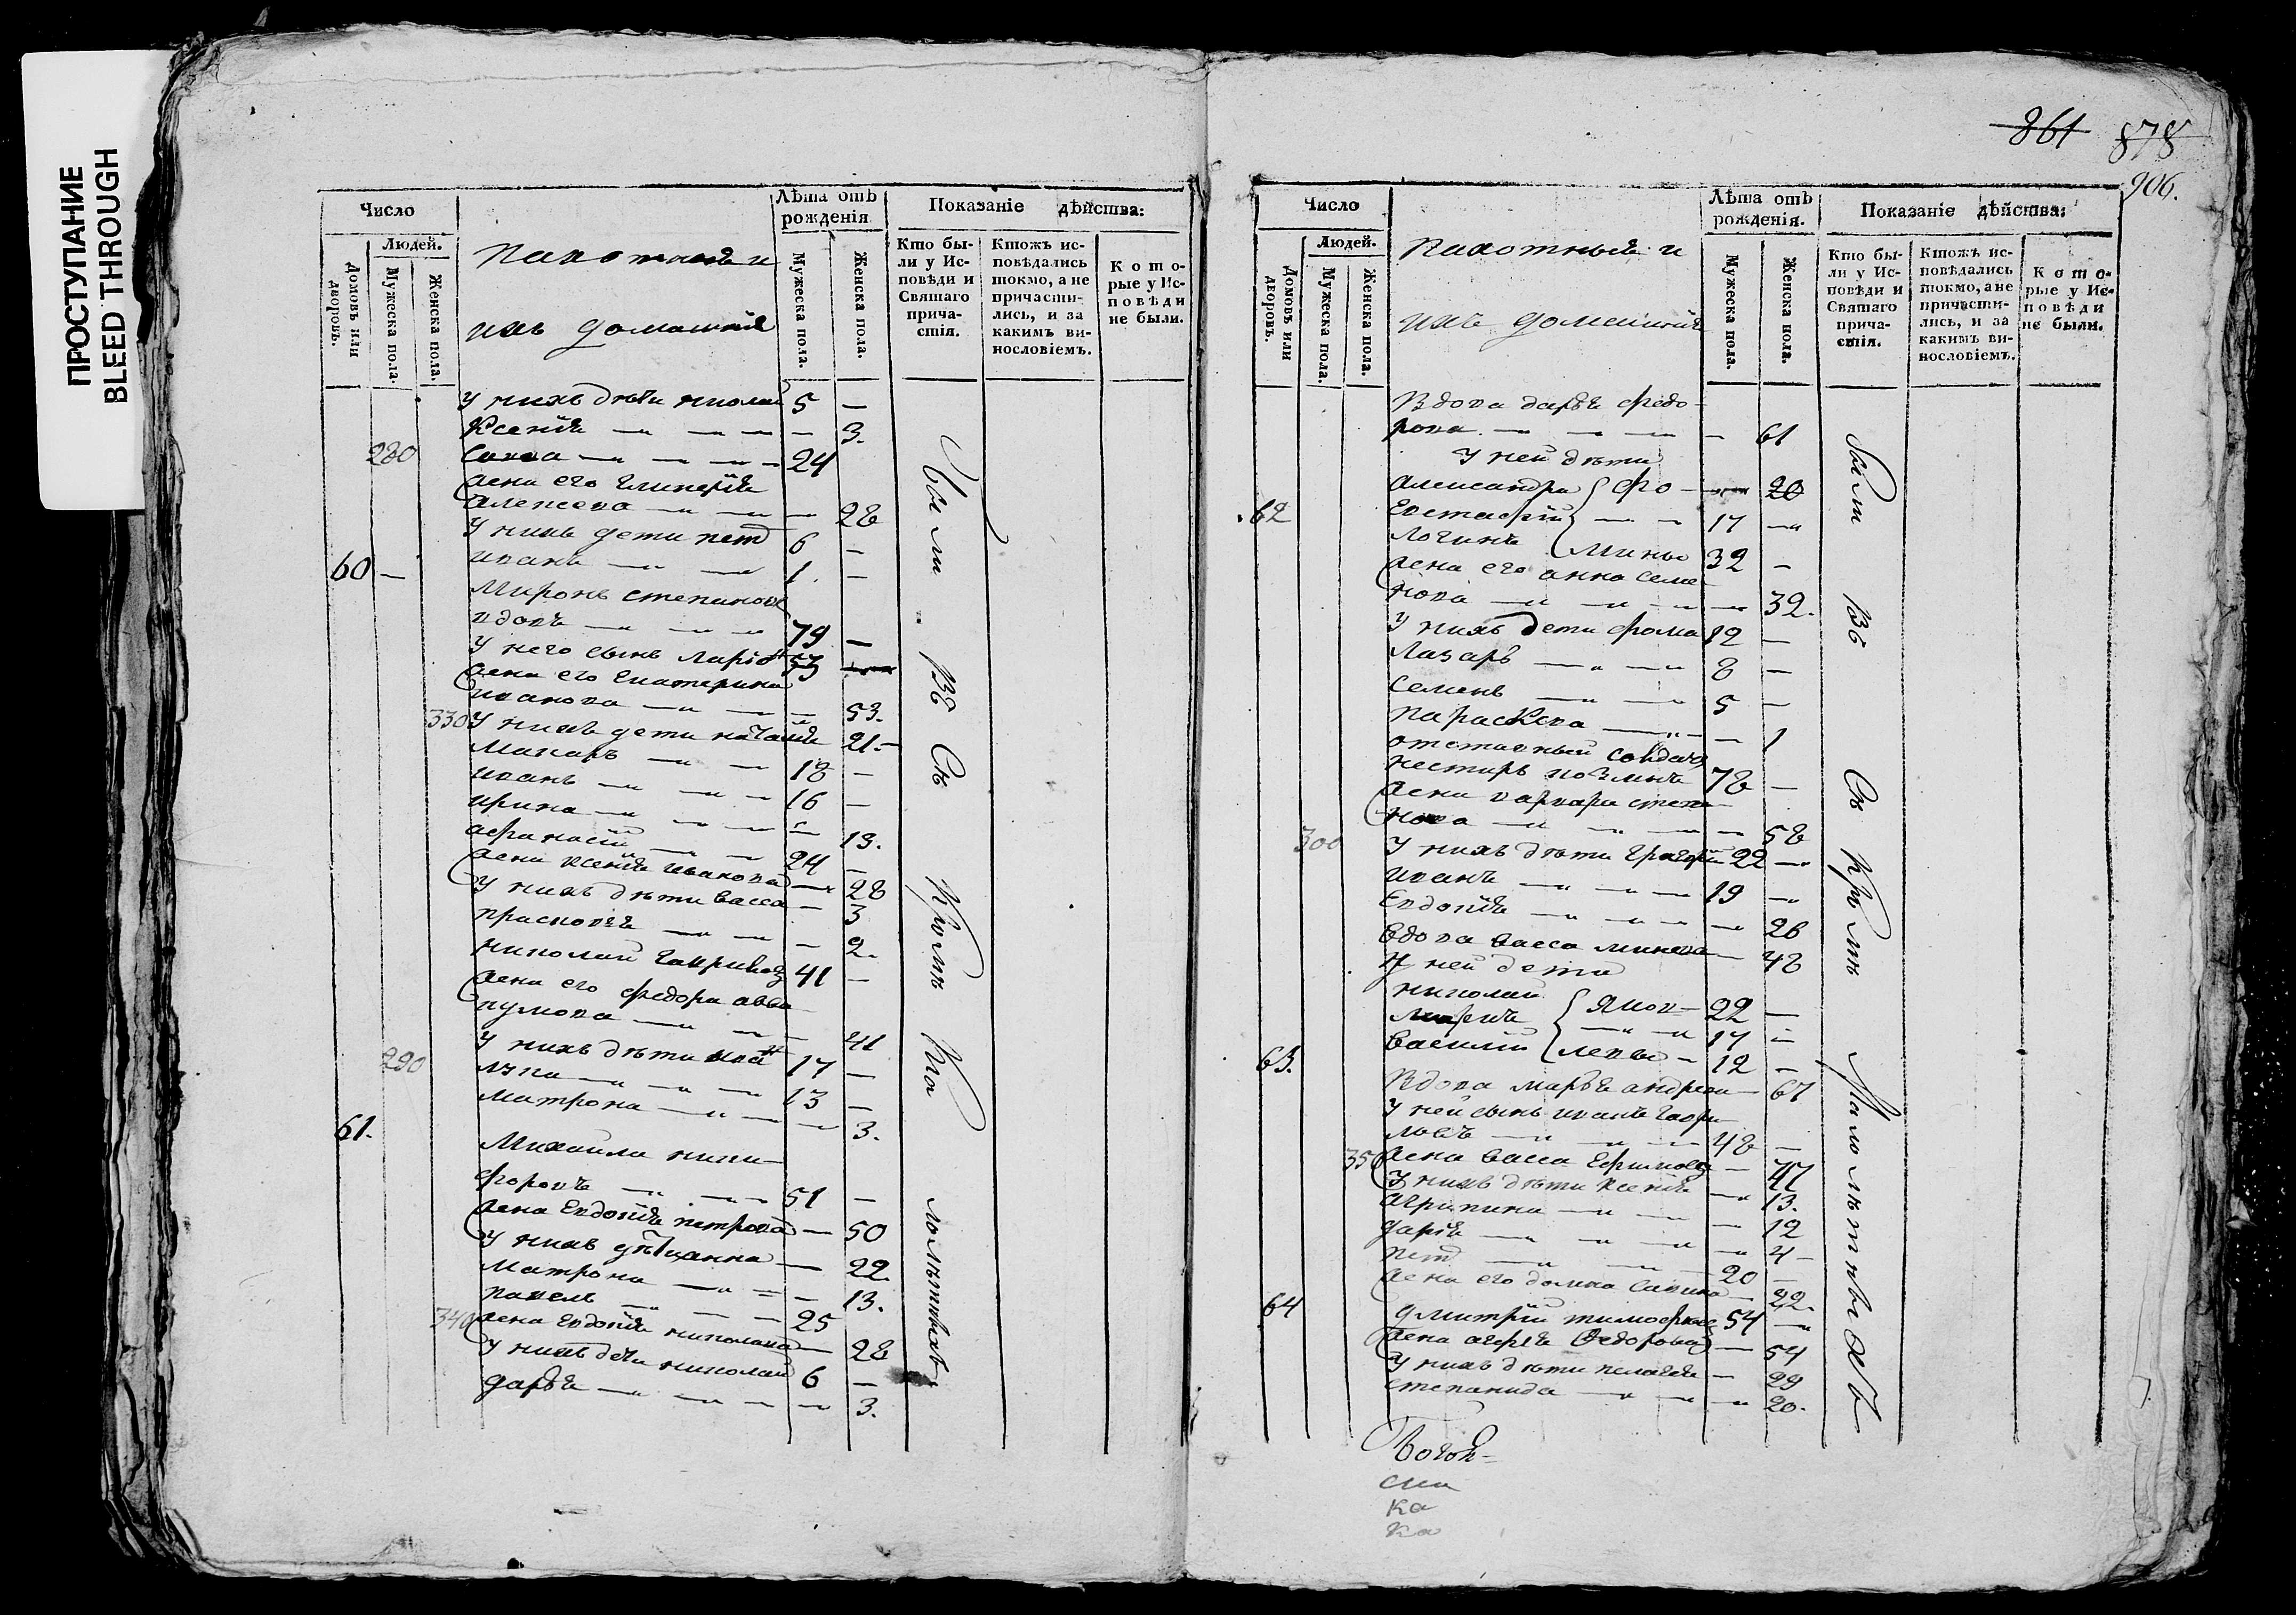 ПРОСТУПАНИЕ
BLEED THROUGH
Число
Людей.
Домовъ или дворовъ.
Мужеска пола.
Женска пола.
Пахотныя и
ихъ домашнія
Лѣта отъ рожденія
Мужеска пола.
Женска пола.
Показаніе дѣйства:
Кто бы-
ли у Ис-
повѣди и
Святаго
прича-
стія.
Ктожъ ис-
повѣдались
токмо, а не
причасти-
лись, и за
какимъ ви-
нословіемъ.
Кото-
рые у Ис-
повѣди
не были.
У нихъ дѣти 5 —
Ксенія — — — — 3.
280 Савва — — — 24
жена его Гликерія
Алексеева — — — 28
У нихъ дети петръ 6 —
60 — иванъ — — 1. —
Миронъ степановъ
вдовъ — — — 79 —
У него сынъ Ларіонъ 53
жена его Екатерина
иванова — — — 53.
330 У нихъ дети наталія 21. —
Макаръ — — 18 —
иванъ — — — 16 —
ирина — — — — 13.
афанасій — — 24 —
жена ксенія иванова — 28
У нихъ дѣти васса — 3
прасковья — — — 2.
николай Гавриловъ 41 —
жена его федора авва-
кумова — — — 41
290 У нихъ дѣти 17 —
лука — — — 13 —
матрона — — — 3.
61. Михаила ники-
форовъ — — — 51 —
жена Евдокія петрова — 50
У нихъ дѣти анна — 22.
матрона — — — 13.
павелъ — — — 25
340 жена Евдокія николаева — 28
У нихъ дети николай 6 —
дарья — — — — 3.
Были въ св Кро мѣ Ма лолѣтныхъ
861 878
906.
Число
Людей.
Домовъ или дворовъ.
Мужеска пола.
Женска пола.
Пахотныя и
ихъ домашнія
Лѣта отъ рожденія.
Мужеска пола.
Женска пола.
Показаніе дѣйства:
Кто бы-
ли у Ис-
повѣди и
Святаго
прича-
стія.
Ктожъ ис-
повѣдались
токмо, а не
причасти-
лись, и за
какимъ ви-
нословіемъ.
Кото-
рые у Ис-
повѣди
не были.
Вдова дарья федо-
рова — — — — 61
У ней дѣти
александра { Фо — 20
62 Евстафій — — 17 —
Логинъ { мины 32 —
жена его анна семе-
нова — — — — 32.
У нихъ дети фома 12 —
Лазарь — — 8 —
Семенъ — — 5 —
параскева — — — 1
отставный солдатъ
нестиръ 78 —
жена варвара степа-
нова — — — — 58
300 У нихъ дѣти Григорій 22 —
иванъ — — — 19 —
Евдокія — — — — 26
вдова васса минева — 48
У ней дети
николай { Яков — 22 —
марья — — 17 —
василій { левы — 12 —
63. Вдова марья андреева — 67
У ней сынъ иванъ Гаври-
ловъ — — — 48 —
350 жена васса Ефимова — 47
У нихъ дѣти ксенія — 13.
агрипина — — — 12
дарія — — — — 4 —
петръ — — — 20 —
жена его домна савина — 22.
64 дмитрій тимофеевъ 54 —
жена агафія Федорова — 54
У нихъ дѣти пелагея — 29
степанида — — — 20.
Были въ св Кромѣ Малолѣтныхъ
Богоя-
ска
ка
ка